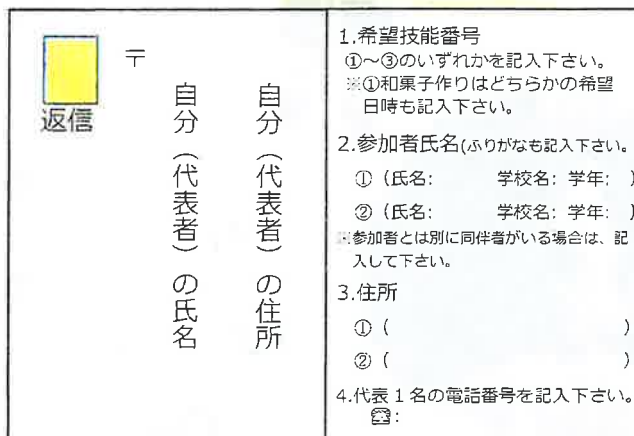 返信
〒
自分（代表者）の住所
自分（代表者）の氏名
1.希望技能番号
①～③のいずれかを記入下さい。
※①和菓子作りはどちらかの希望
日時も記入下さい。
2.参加者氏名(ふりがなも記入下さい。
①（氏名: 学校名: 学年: ）
②（氏名: 学校名: 学年: ）
※参加者とは別に同伴者がいる場合は、記
入して下さい。
3.住所
①（ ）
②（ ）
4.代表１名の電話番号を記入下さい。
☎: